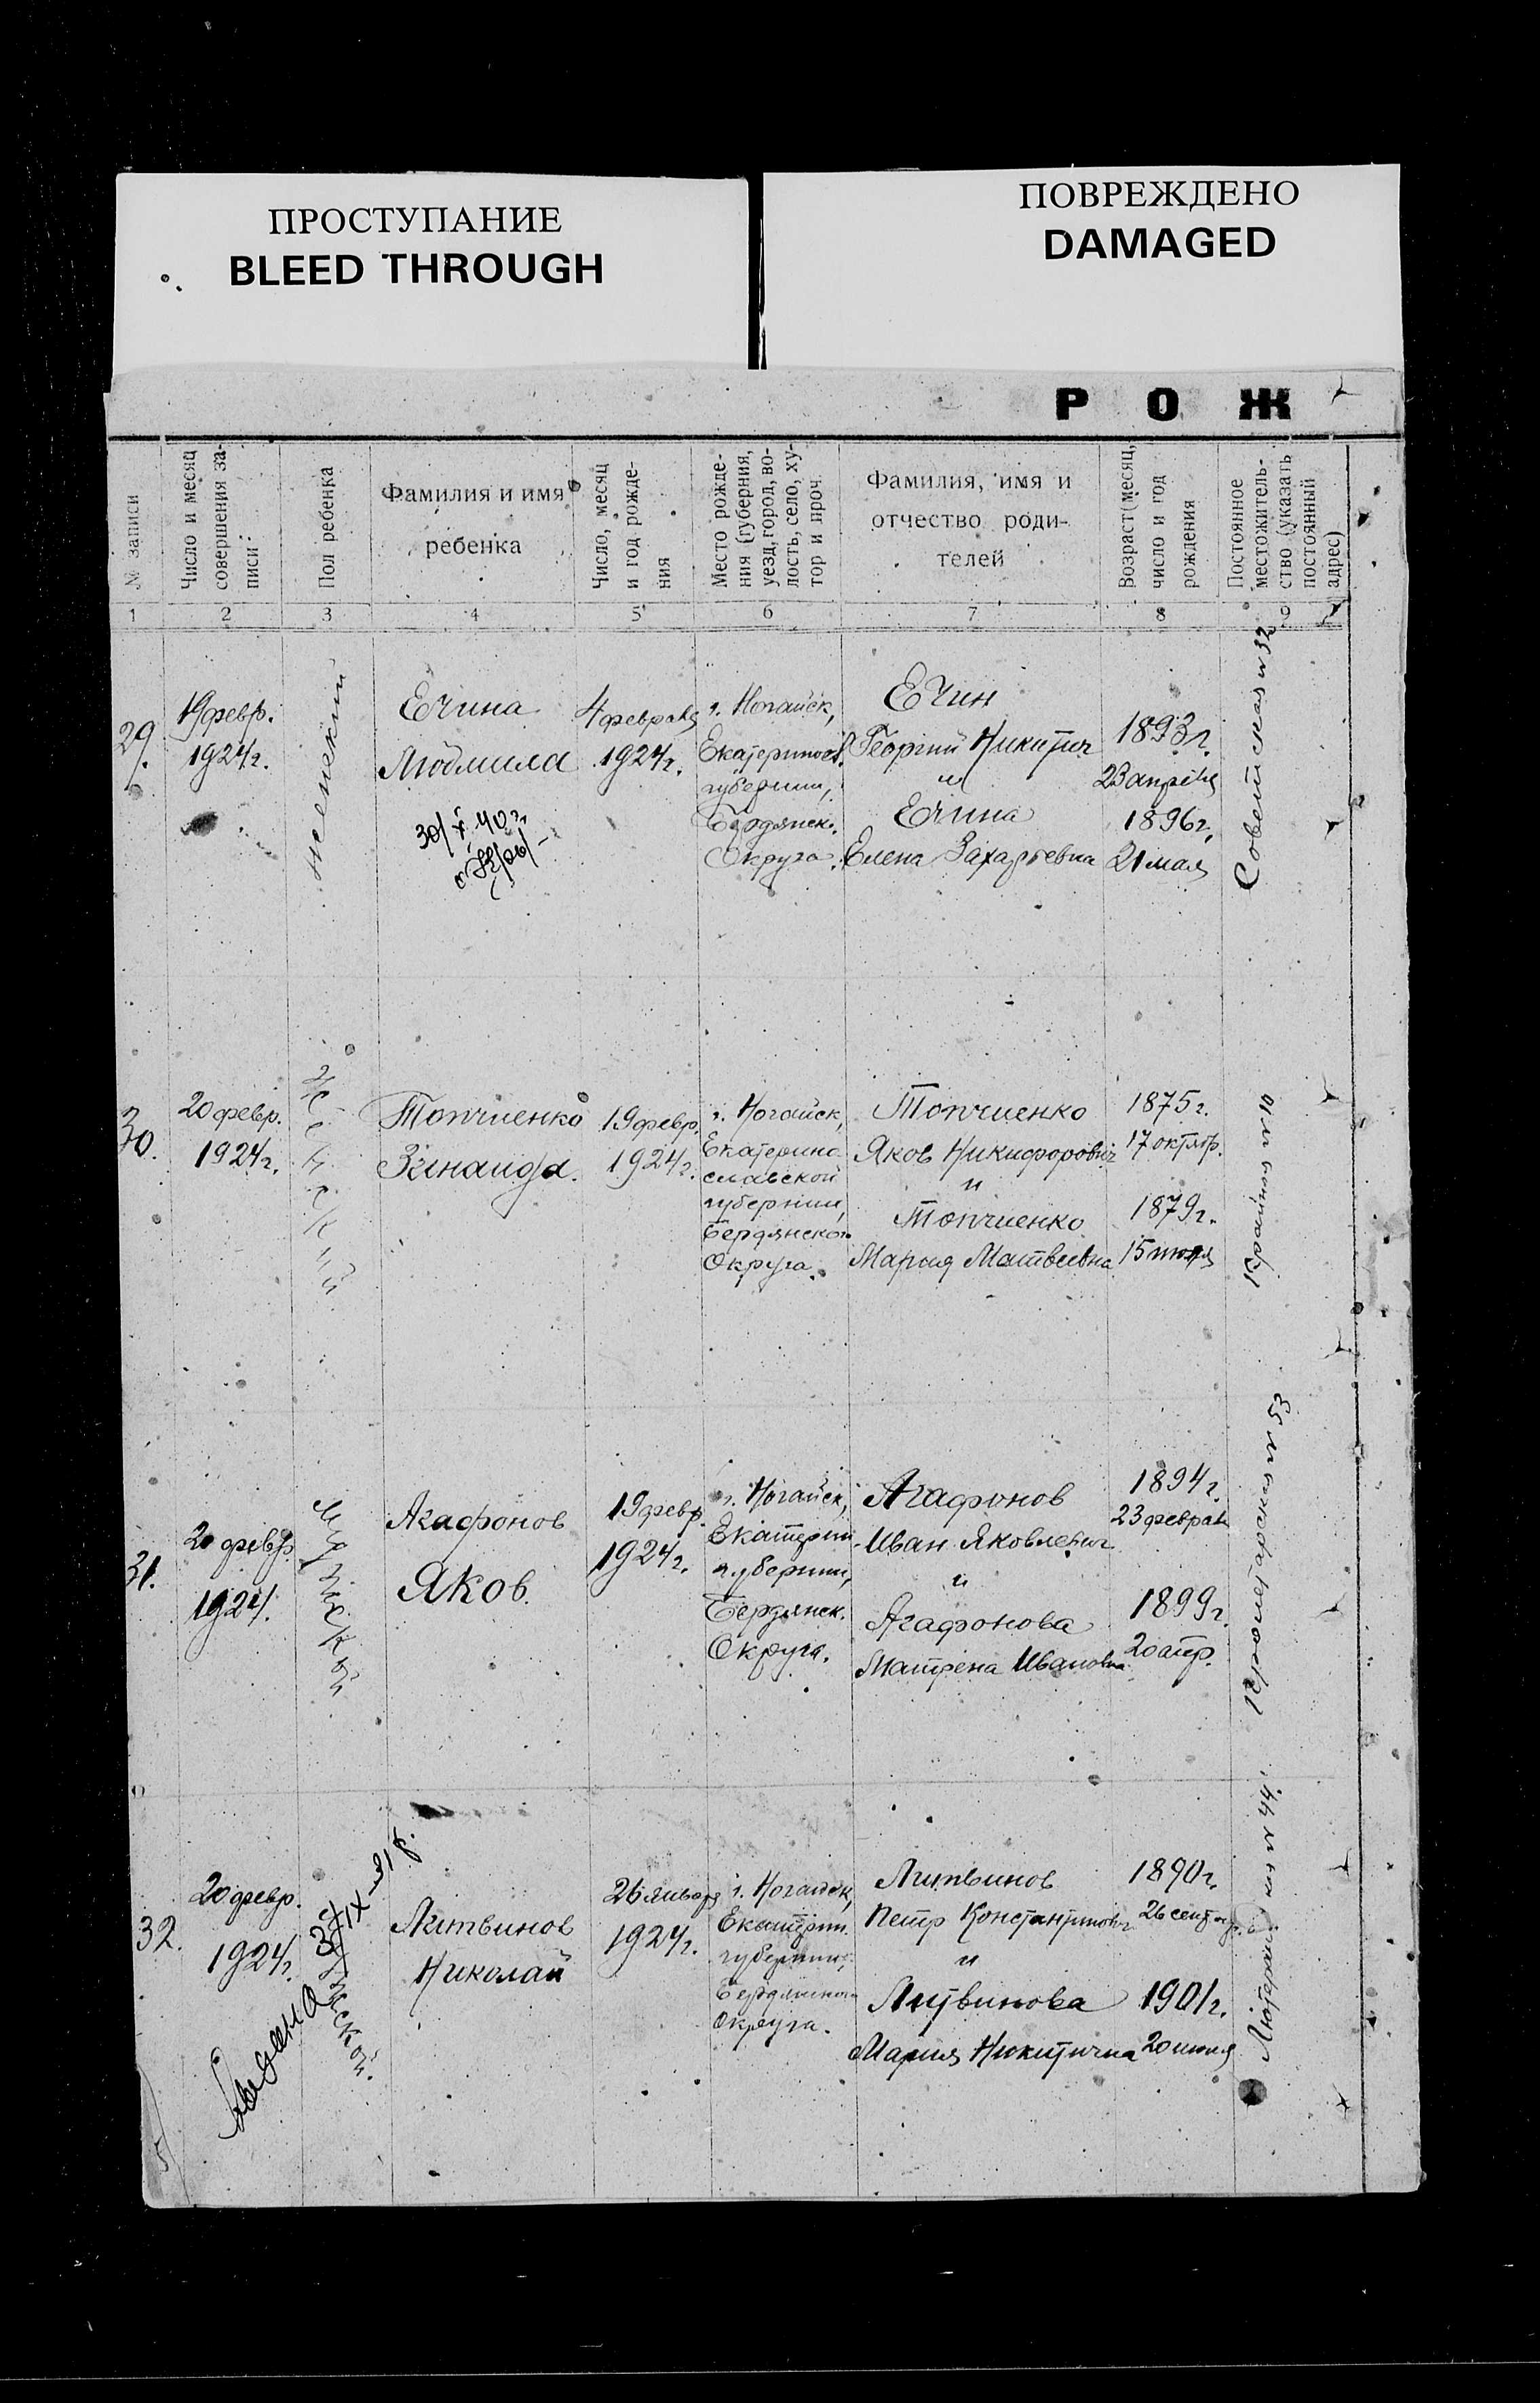 ПРОСТУПАНИЕ
BLEED THROUGH
ПОВРЕЖДЕНО
DAMAGED
Р О Ж
№ записи
Число и месяц
совершения за-
писи
Пол ребенка
Фамилия и имя
ребенка
Число, месяц
и год рожде-
ния
Место рожде-
ния (губерния,
уезд, город, во-
лость, село, ху-
тор и проч.
Фамилия, имя и
отчество роди-
телей
Возраст (месяц,
число и год
рождения
Постоянное
местожитель-
ство (указать
постоянный
адрес)
1 2 3 4 5 6 7 8 9
29.
19 февр.
1924 г.
женский
Ечина
Людмила
4 февраля
1924 г.
г. Ногайск,
Екатериносл.
губернии,
Бердянск.
Округа.
Ечин
Георгий Никитич
и
Ечина
Елена Захарьевна
1893 г.
23 апреля
1896 г.
21 мая
Советская № 32
30.
20 февр.
1924 г.
женский
Топчиенко
Зинаида.
19 февр.
1924 г.
г. Ногайск,
Екатерино
славской
губернии,
Бердянского
Округа.
Топчиенко
Яков Никифорович
и
Топчиенко
Мария Матвеевна
1875 г.
17 октябр.
1879 г.
15
Крайняя № 10
31.
20 февр.
1924.
мужской
Агафонов
Яков.
19 февр.
1924 г.
г. Ногайск,
Екатерин.
губернии,
Бердянск.
Округа.
Агафонов
Иван Яковлевич
и
Агафонова
Матрена Ивановна
1894 г.
23 февраля
1899 г.
20 апр.
Пролетарская № 53
32.
20 февр.
1924 г.
мужской.
Литвинов
Николай
26 января
1924 г.
г. Ногайск,
Екатерин.
губернии,
Бердянского
Округа.
Литвинов
Петр Константинович
и
Литвинова
Мария Никитична
1890 г.
26 сентяб.
1901 г.
20 июня
Лютеранская № 44.